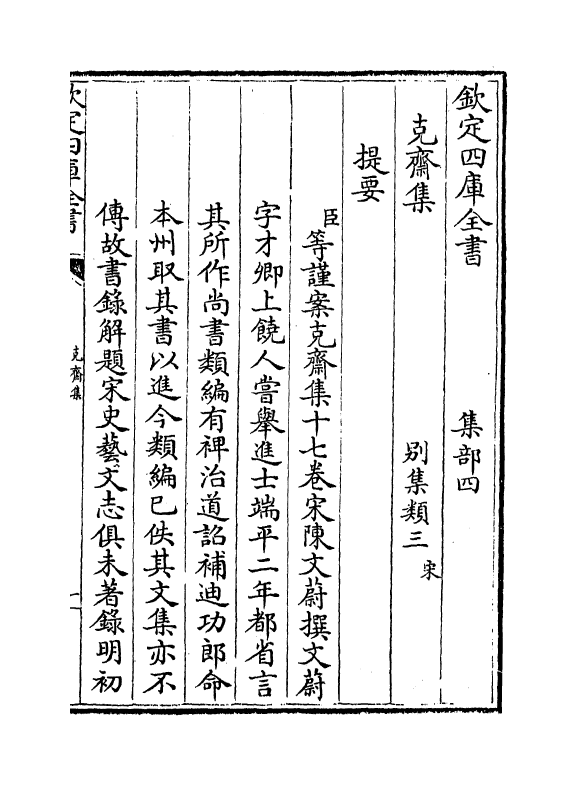 欽定四庫全書　集部四
克齋集　別集類三宋
提要
臣等謹案克齋集十七卷宋陳文蔚撰文蔚
字才卿上饒人嘗舉進士端平二年都省言
其所作尚書類編有裨治道詔補迪功郎命
本州取其書以進今類編已佚其文集亦不
傳故書錄解題宋史藝文志俱未著錄明初
欽定四庫全書
克齋集
一